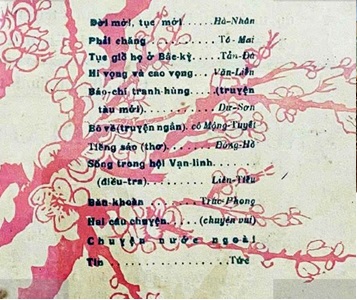 Đời mới, tục mới......Hà-Nhân
Phải chăng............Tô-Mai
Tục giỗ họ ở Bắc-kỳ....Tản-Đà
Hi vọng và cao vọng....Văn-Liên
Báo-chí tranh-hùng......(truyện
tàu mới)............Dư-Sơn
Bỏ vẽ (truyện ngắn). cô Mộng-Tuyết
Tiếng sáo (thơ)........Đông-Hồ
Sống trong hội Vạn-linh.
(điều-tra)..........Liên-Tiếu
Băn-khoăn............Trúc-Phong
Hai câu chuyện......(chuyện vui)
Chuyện nước ngoài
Tin..................Tức